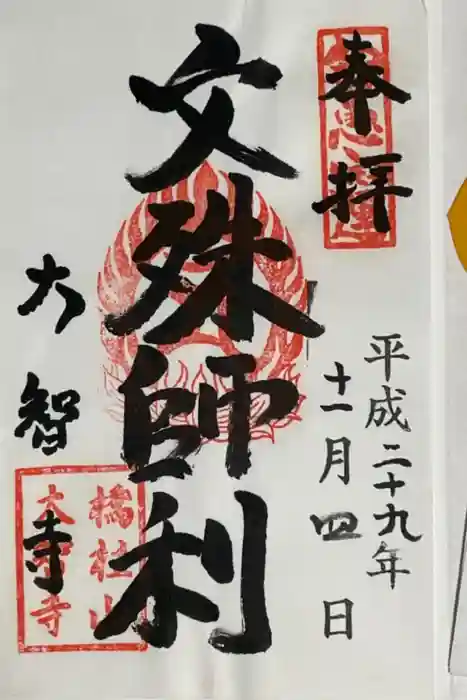 奉拝
平成二十九年
十一月四日
文殊師利
大智寺
橋柱山
大智寺